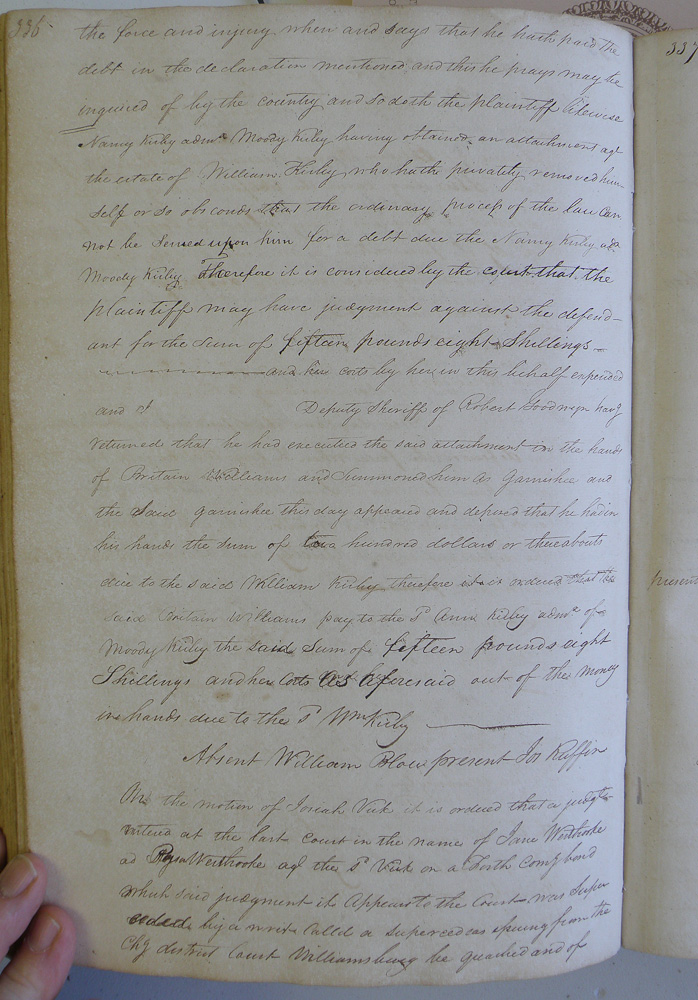 336
the force and injury when and says that he hath paid the
debt in the declaration mentioned and this he prays may be
inquired of by the country and so doth the plaintiff likewise
Nancy Kirby admx Moody Kirby having obtained an attachment agt
the estate of William Kirby who hath privately removed him
self or so obsconds that the ordinary process of the law can
not be served upon him for a debt due the Nancy Kirby
Moody Kirby Therefore it is considered by the court that the
plaintiff may have judgment against the defend-
ant for the sum of fifteen pounds eight Shillings
and her costs by her in this behalf expended
and J Deputy Sheriff of Robert Goodwyn havg
returned that he had executed the said attachment in the hands
of Britain Williams and Summoned him as garnishee and
the said garnishee this day appeared and deposed that he had in
his hands the sum of a hundred dollars or thereabouts
due to the said William Kirby therefore it is ordered that the
said Britain Williams pay to the Sd Ann Kirby admx of
Moody Kirby the said sum of fifteen pounds eight
Shillings and her Costs as aforesaid out of the money
in hands due to the Sd Wm Kirby
Absent William Blow present Jos Ruffin
On the motion of Josiah Vick it is ordered that a judgt
at the last court in the name of Jane
agt the Sd Vick on a Forth comg bond
which said judgment it appears to the Court was super
ceded by a writ called a supercedeas issuing from the
Chy district Court Williamsburg be quashed and of
337
present